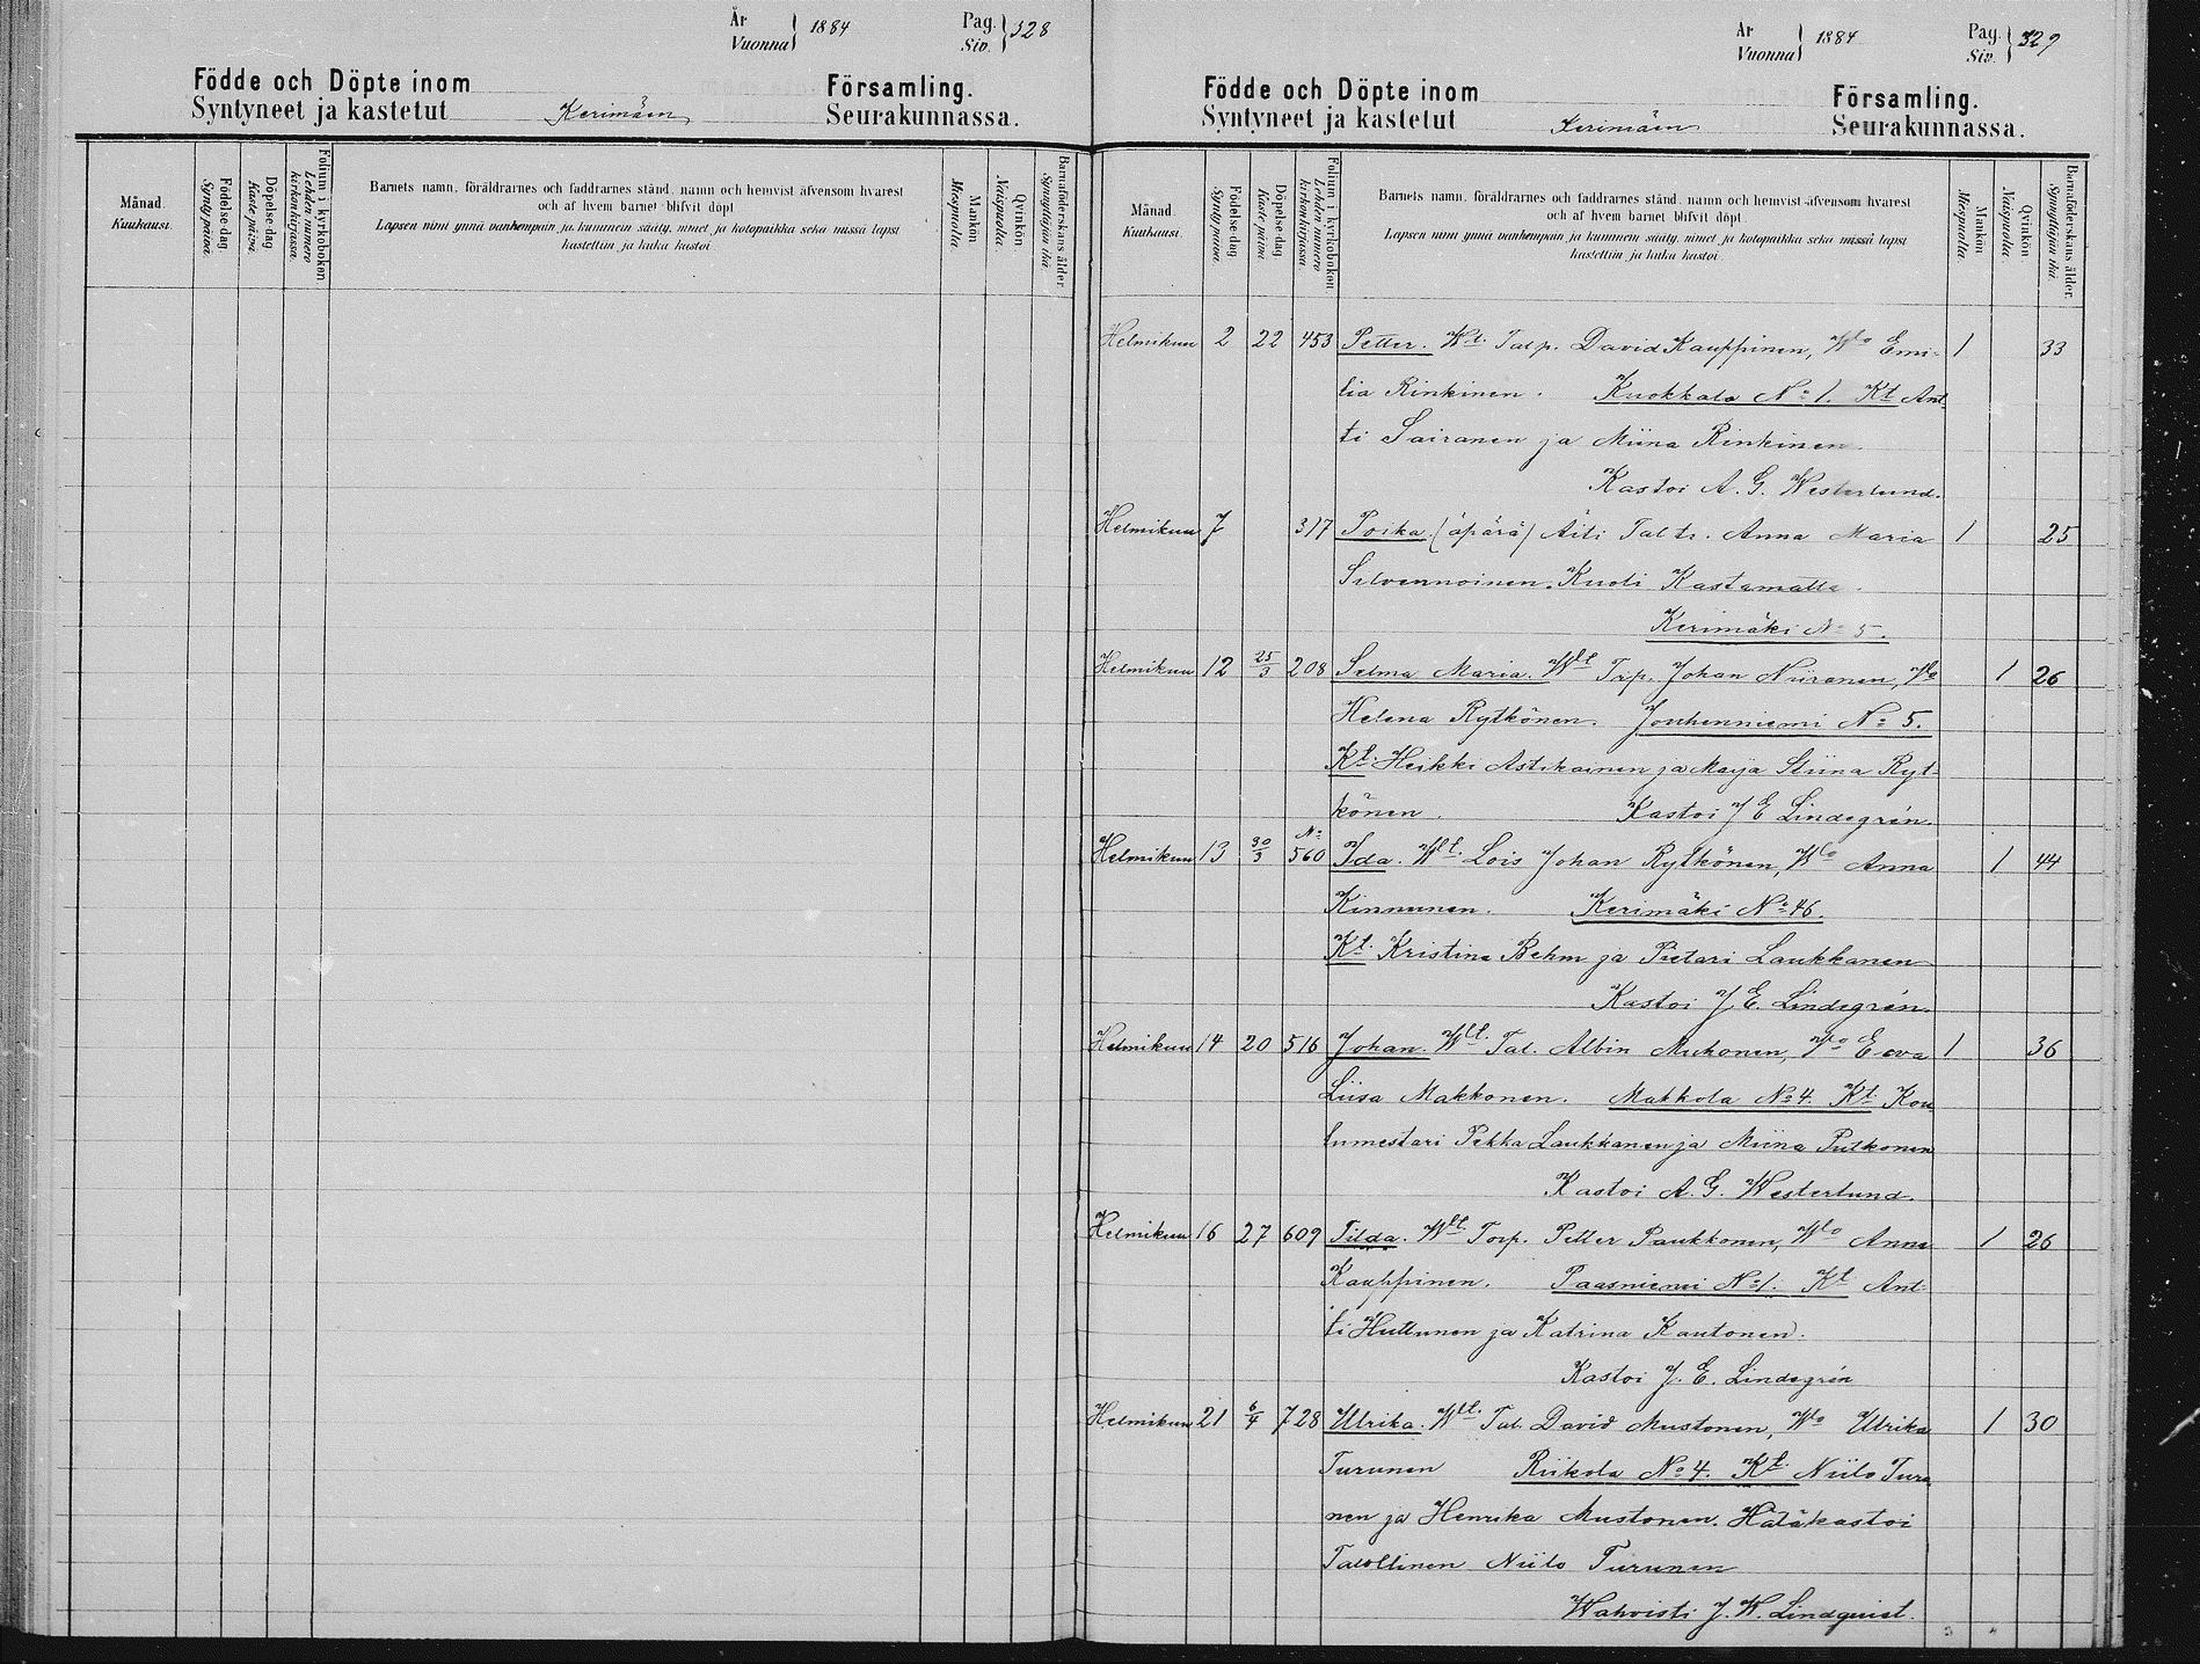 År
Vuonna } 1884
Pag.
Siv. } 328
Födde och Döpte inom Församling.
Syntyneet ja kastetut Kerimäen Seurakunnassa.
Månad.
Kuukausi.
Födelse-dag.
Synty päivä.
Döpelse-dag.
Kaste päivä.
Folium i kyrkoboken.
Lehden numero
kirkonkirjassa.
Barnets namn, föräldrarnes och faddrarnes stånd, namn och hemvist äfvensom hvarest
och af hvem barnet blifvit döpt
Lapsen nimi ynnä vanhempain ja kummein sääty, nimet ja kotopaikka sekä missä lapsi
kastettiin ja kuka kastoi
Mankön
Miespuolia.
Qvinkön
Naispuolia.
Barnaföderskans ålder.
Synnyttäjän ikä.
År
Vuonna } 1884
Pag.
Siv. } 329
Födde och Döpte inom Församling.
Syntyneet ja kastetut Kerimäen Seurakunnassa.
Månad.
Kuukausi.
Födelse-dag
Synty päivä.
Döpelse dag
Kaste päivä
Folium i kyrkoboken.
Lehden numero
kirkonkirjassa.
Barnets namn, föräldrarnes och faddrarnes stånd, namn och hemvist äfvensom hvarest
och af hvem barnet blifvit döpt.
Lapsen nimi ynnä vanhempain ja kummein sääty, nimet ja kotopaikka sekä missä lapsi
kastettiin ja kuka kastoi
Mankön
Miespuolia.
Qvinkön
Naispuolia.
Barnaföderskans ålder.
Synnyttäjän ikä.
Helmikuu 2 22 453 Petter. Wt. Talp. David Kauppinen, Wo Emi- 1 33
lia Rinkinen. Kuokkala No 1. Kt Ant-
ti Sairanen ja Miina Rinkinen.
Kastoi A. G. Westerlund.
Helmikuu 7 317 Poika (äpärä) Äiti Talts. Anna Maria 1 25
Silvennoinen. Kuoli Kastamatta.
Kerimäki No 5.
Helmikuu 12 25/3 208 Selma Maria. Wlt Trp. Johan Niiranen, Wo 1 26
Helena Rytkönen. Jouhenniemi No 5.
Kt. Heikki Astikainen ja Maija Stiina Ryt-
könen. Kastoi J E Lindegrén.
Helmikuu 13 30/3 No 560 Ida. Wlt. Lois Johan Rytkönen, Wlo Anna 1 44
Kinnunen. Kerimäki No 46.
Kt. Kristina Behm ja Pietari Laukkanen
Kastoi J. E. Lindegrén.
Helmikuu 14 20 516 Johan. Wlt. Tal. Albin Muhonen, Wo Eeva 1 36
Liisa Makkonen. Makkola No 4. Kt. Kou
lumestari Pekka Laukkanen ja Miina Putkonen
Kastoi A. G. Westerlund.
Helmikuu 16 27 609 Tilda. Wlt. Torp. Petter Paukkonen, Wlo Anna 1 26
Kauppinen. Paasniemi No 1. Kt Ant-
ti Huttunen ja Katrina Kautonen.
Kastoi J. E. Lindegrén
Helmikuu 21 6/4 728 Ulrika. Wlt. Tal. David Mustonen, Wo Ulrika 1 30
Turunen Riikola No 4. Kt. Niilo Turu
nen ja Henrika Mustonen. Hätäkastoi
Talollinen Niilo Turunen
Wahvisti J. W. Lindquist.